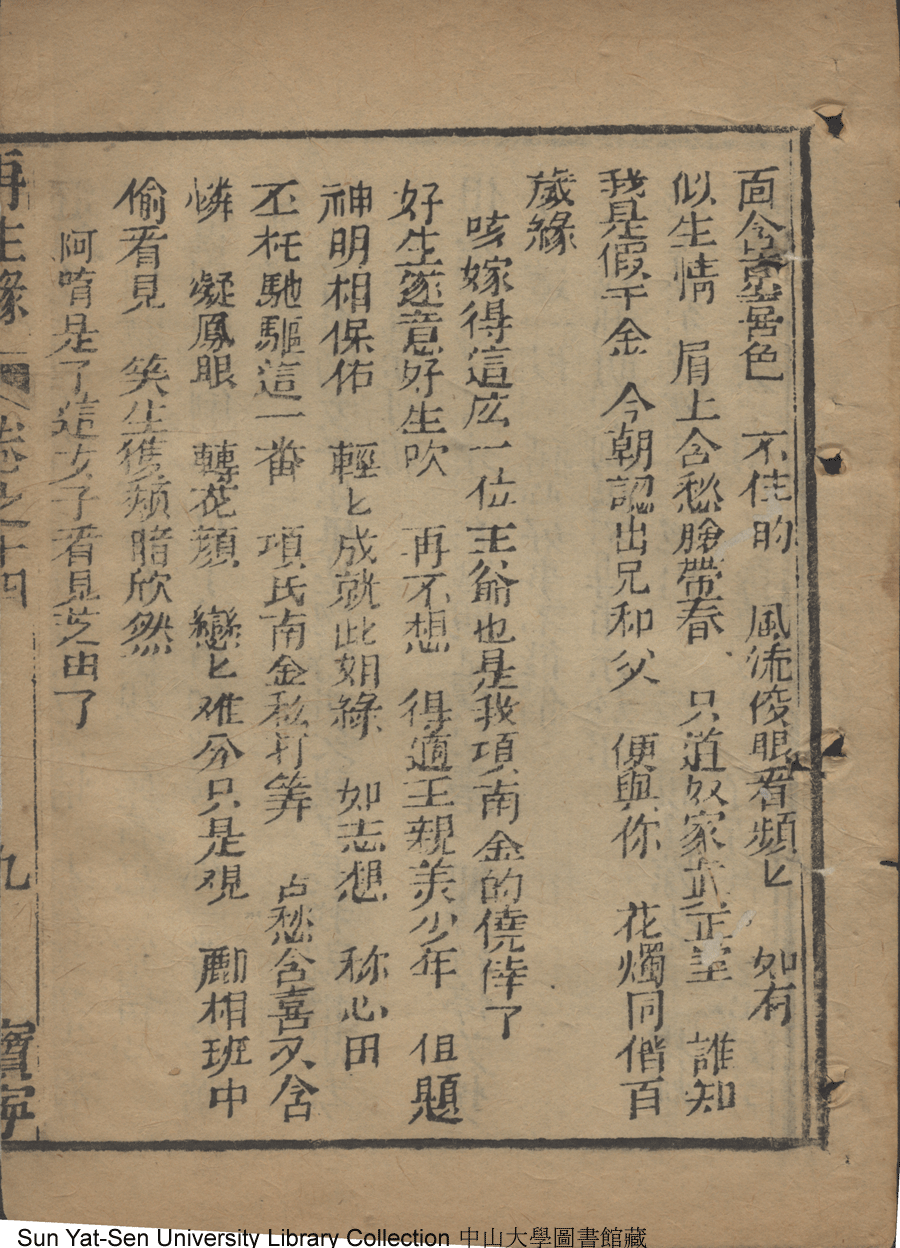 面含喜色 不住的 風流俊眼看頻匕 如有
似生情 眉上含愁臉帶春 只道奴家正室 誰知
我是假千金 今朝認出兄和父 便與你 花燭同偕百
歲緣
咳嫁得這広一位王爺也是我項南金的僥倖了
好生遂意好生吹 再不想 得適王親美少年 但題
神明相保佑 輕匕成就此姻緣 如志想 称心田
不枉馳驅這一番 項氏南金私打筭 占愁含喜又含
憐 凝鳳眼 轉花顏 戀匕难分只是覌 酈相班中
偷看見 笑生雙頰暗欣然
阿唷是了這女子看見芝田了
再生緣 卷之十四 九 寳寧
Sun Yat-Sen University Library Collection 中山大學圖書館藏